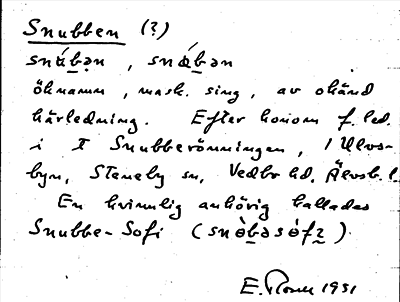 Snubben (?)
snúb̲ən, snǿb̲ən
öknamn, mask. sing, av okänd
härledning. Efter honom f. led.
i T Snubberönningen, i Ulvs-
byn, Steneby sn, Vedbo hd, Älvsb. l.
En kvinnlig anhörig kallades
Snubbe-Sofi (snòb̲əsófi̲).
E. 1951